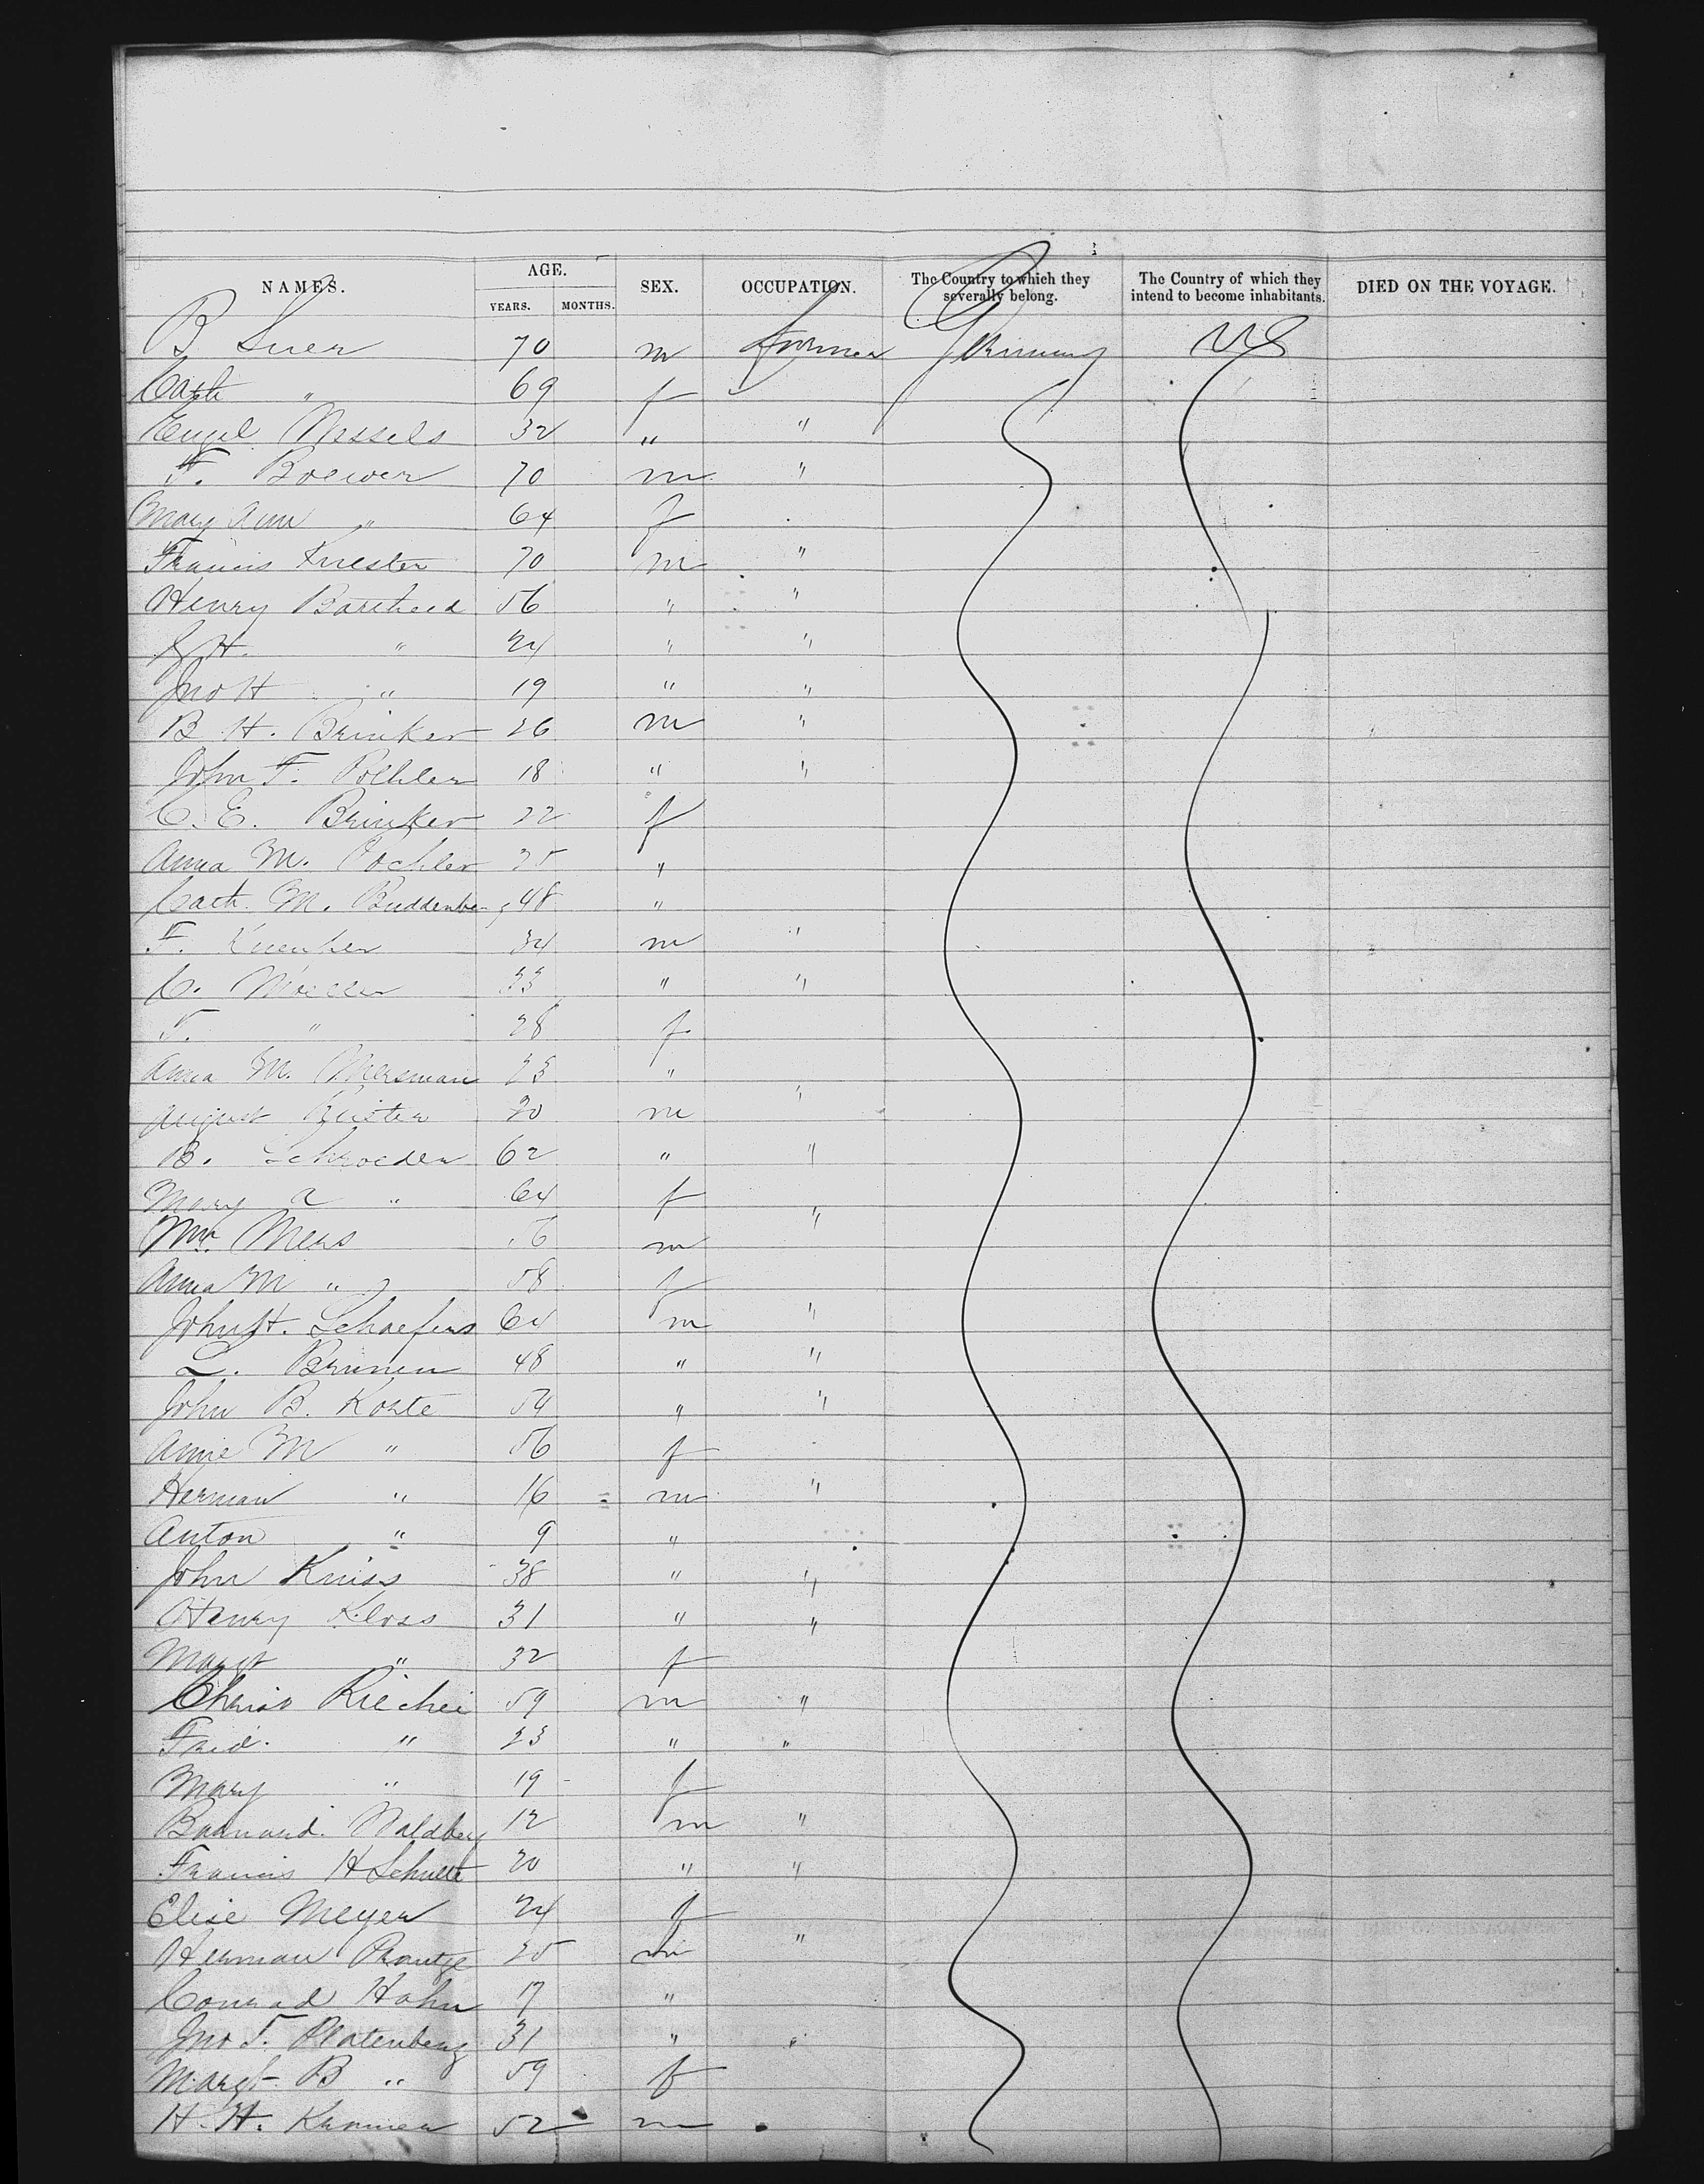 NAMES. AGE. SEX. OCCUPATION. The Country to which they severally belong. The Country of which they intend to become inhabitants. DIED ON THE VOYAGE.
YEARS. MONTHS.
B Suer 70 m Farmer Germany US
Cath " 69 f
Engel Wessels 32 " "
F. Boewer 70 m "
Mary Ann " 64 f
Francis Kuester 70 m "
Henry 56 " "
H. " 24 " "
Jno H " 19 " "
B H. Brinker 26 m "
John F. 18 " "
C. E. Brinker 22 f
Anna M. 25 "
Cath. M. Buddenberg 48 "
F. 34 m "
C. Moeller 33 " "
F. " 28 f
Anna M. Mersman 23 "
August 20 m "
B. Schroeder 62 " "
Mary A " 64 f
Wm. Mers 56 m "
Anna M " 58 f
John H. Schaefers 64 m "
L. 48 " "
John B. Korte 54 " "
Anne M " 56 f
Herman " 16 m "
Anton " 9 "
John Kniss 38 " "
Henry Kloss 31 " "
Margt " 32 f
Christ 59 m "
Fred. " 23 " "
Mary " 19 f
Barnard. Waldberg 12 m "
Francis H Schulte 20 " "
Elise Meyer 24 f
Herman 25 m "
Conrad Hahn 17 "
Jno F. Platenberg 31 " "
Margt. B " 59 f
H. H. 52 m